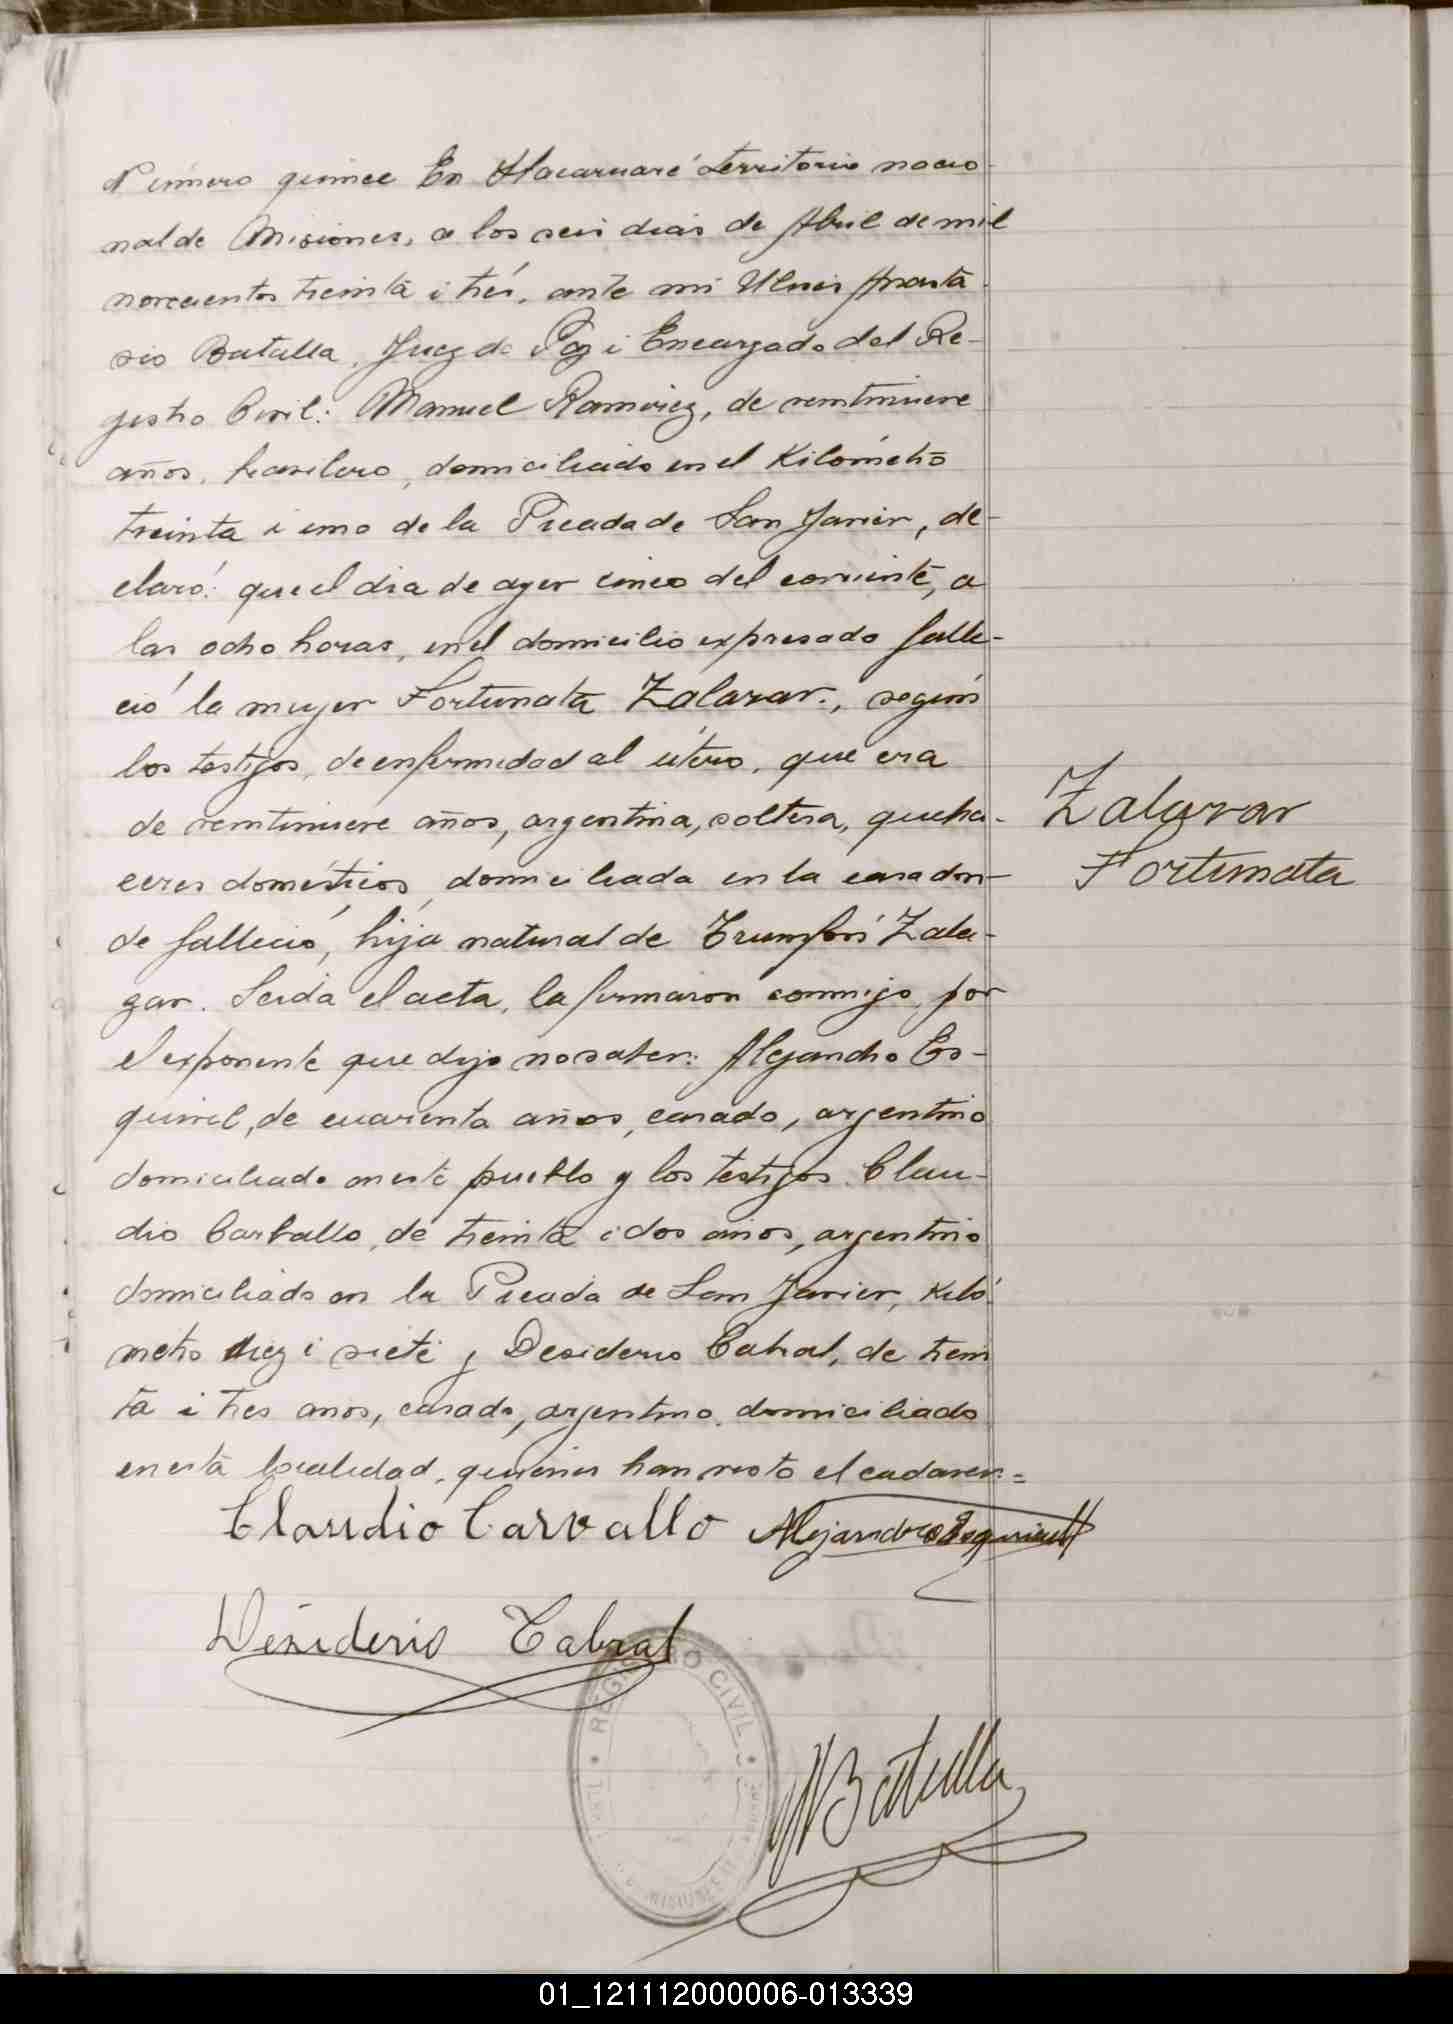 Número quince En Itacaruaré territorio nacio-
nal de Misiones, a los seis dias de Abril de mil
novecientos treinta i trés, ante mi Ulises Anasta-
sio Batalla, Juez de Paz i Encargado del Re-
gistro Civil: Manuel Ramirez, de veintinueve
años, brasilero, domiciliado en el Kilómetro
treinta i uno de la Picada de San Javier, de-
claró: que el dia de ayer cinco del corriente, a
las ocho horas, en el domicilio expresado falle-
ció la mujer Fortunata Zalazar., según
los testigos, de enfermedad al útero, que era
de veintinueve años, argentina, soltera, queha-
ceres domésticos, domiciliada en la casa don-
de falleció, hija natural de Zala-
zar. Leida el acta, la firmaron conmigo, por
el exponente que dijo no saber: Alejandro Es-
quivel, de cuarenta años, casado, argentino
domiciliado en este pueblo y los testigos Clau-
dio Carballo, de treinta i dos años, argentino
domiciliado en la Picada de San Javier, Kiló-
metro diez i siete y Desiderio Cabral, de trein
ta i tres años, casado, argentino, domiciliado
en esta localidad, quienes han visto el cadaver.=
Zalazar
Fortunata
Claudio Carvallo Alejandro Esquivel
Desiderio Cabral
REGISTRO CIVIL
MISIONES
Batalla
01_121112000006-013339